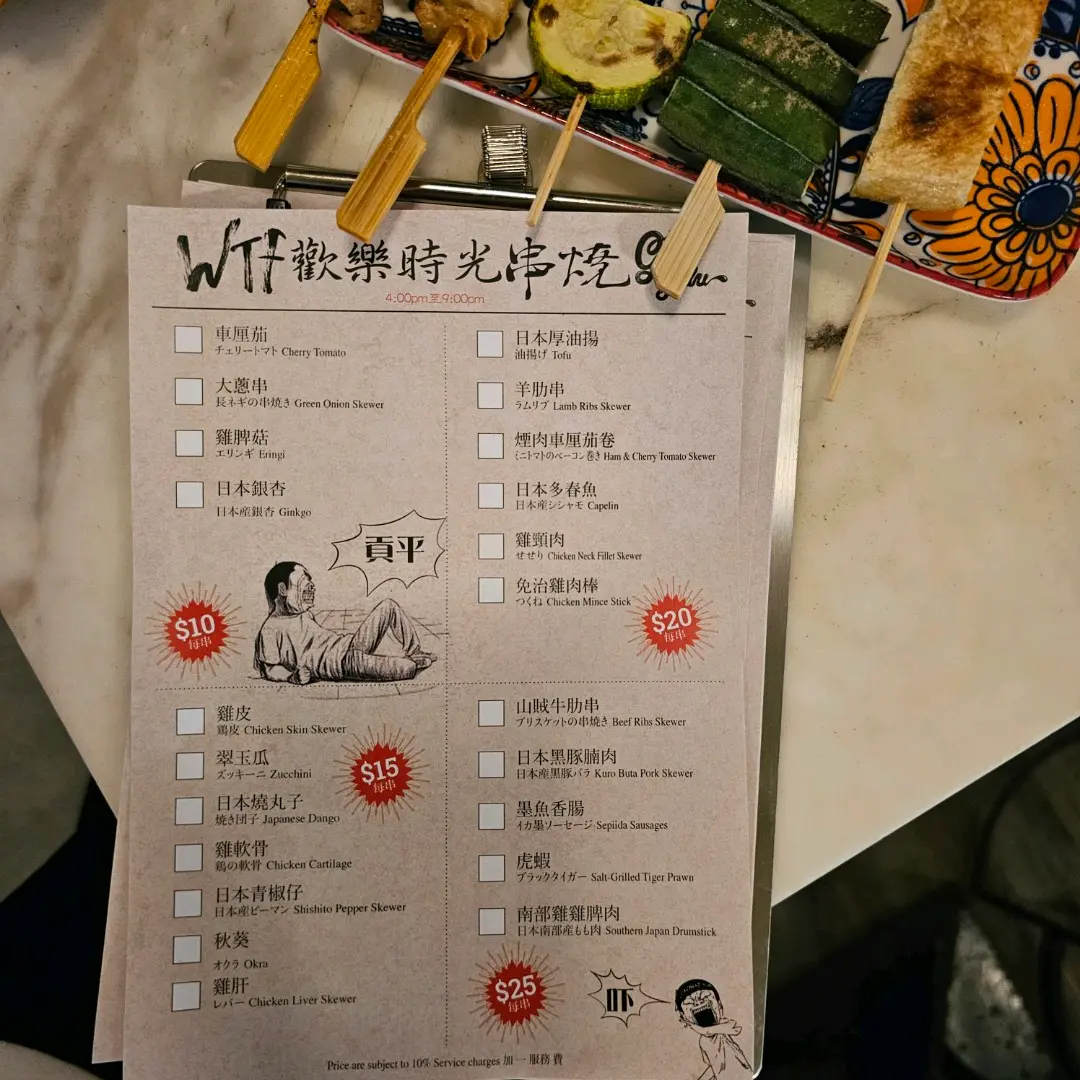 WTF歡樂時光串燒
4:00pm至9:00pm
車厘茄
チェリートマト Cherry Tomato
大蔥串
長ネギの串焼き Green Onion Skewer
雞脾菇
エリンギ Eringi
日本銀杏
日本産銀杏 Ginkgo
貢平
$10
每串
日本厚油揚
油揚げ Tofu
羊肋串
ラムリブ Lamb Ribs Skewer
煙肉車厘茄卷
ミニトマトのベーコン巻き Ham & Cherry Tomato Skewer
日本多春魚
日本産シシャモ Capelin
雞頸肉
せせり Chicken Neck Fillet Skewer
免治雞肉棒
つくね Chicken Mince Stick
$20
每串
雞皮
鶏皮 Chicken Skin Skewer
翠玉瓜
ズッキーニ Zucchini
日本燒丸子
焼き団子 Japanese Dango
雞軟骨
鶏の軟骨 Chicken Cartilage
日本青椒仔
日本産ピーマン Shishito Pepper Skewer
秋葵
オクラ Okra
雞肝
レバー Chicken Liver Skewer
$15
每串
山賊牛肋串
ブリスケットの串焼き Beef Ribs Skewer
日本黑豚腩肉
日本産黒豚バラ Kuro Buta Pork Skewer
墨魚香腸
イカ墨ソーセージ Sepiida Sausages
虎蝦
ブラックタイガー Salt-Grilled Tiger Prawn
南部雞雞脾肉
日本南部産もも肉 Southern Japan Drumstick
$25
每串
吓
Price are subject to 10% Service charges 加一服務費